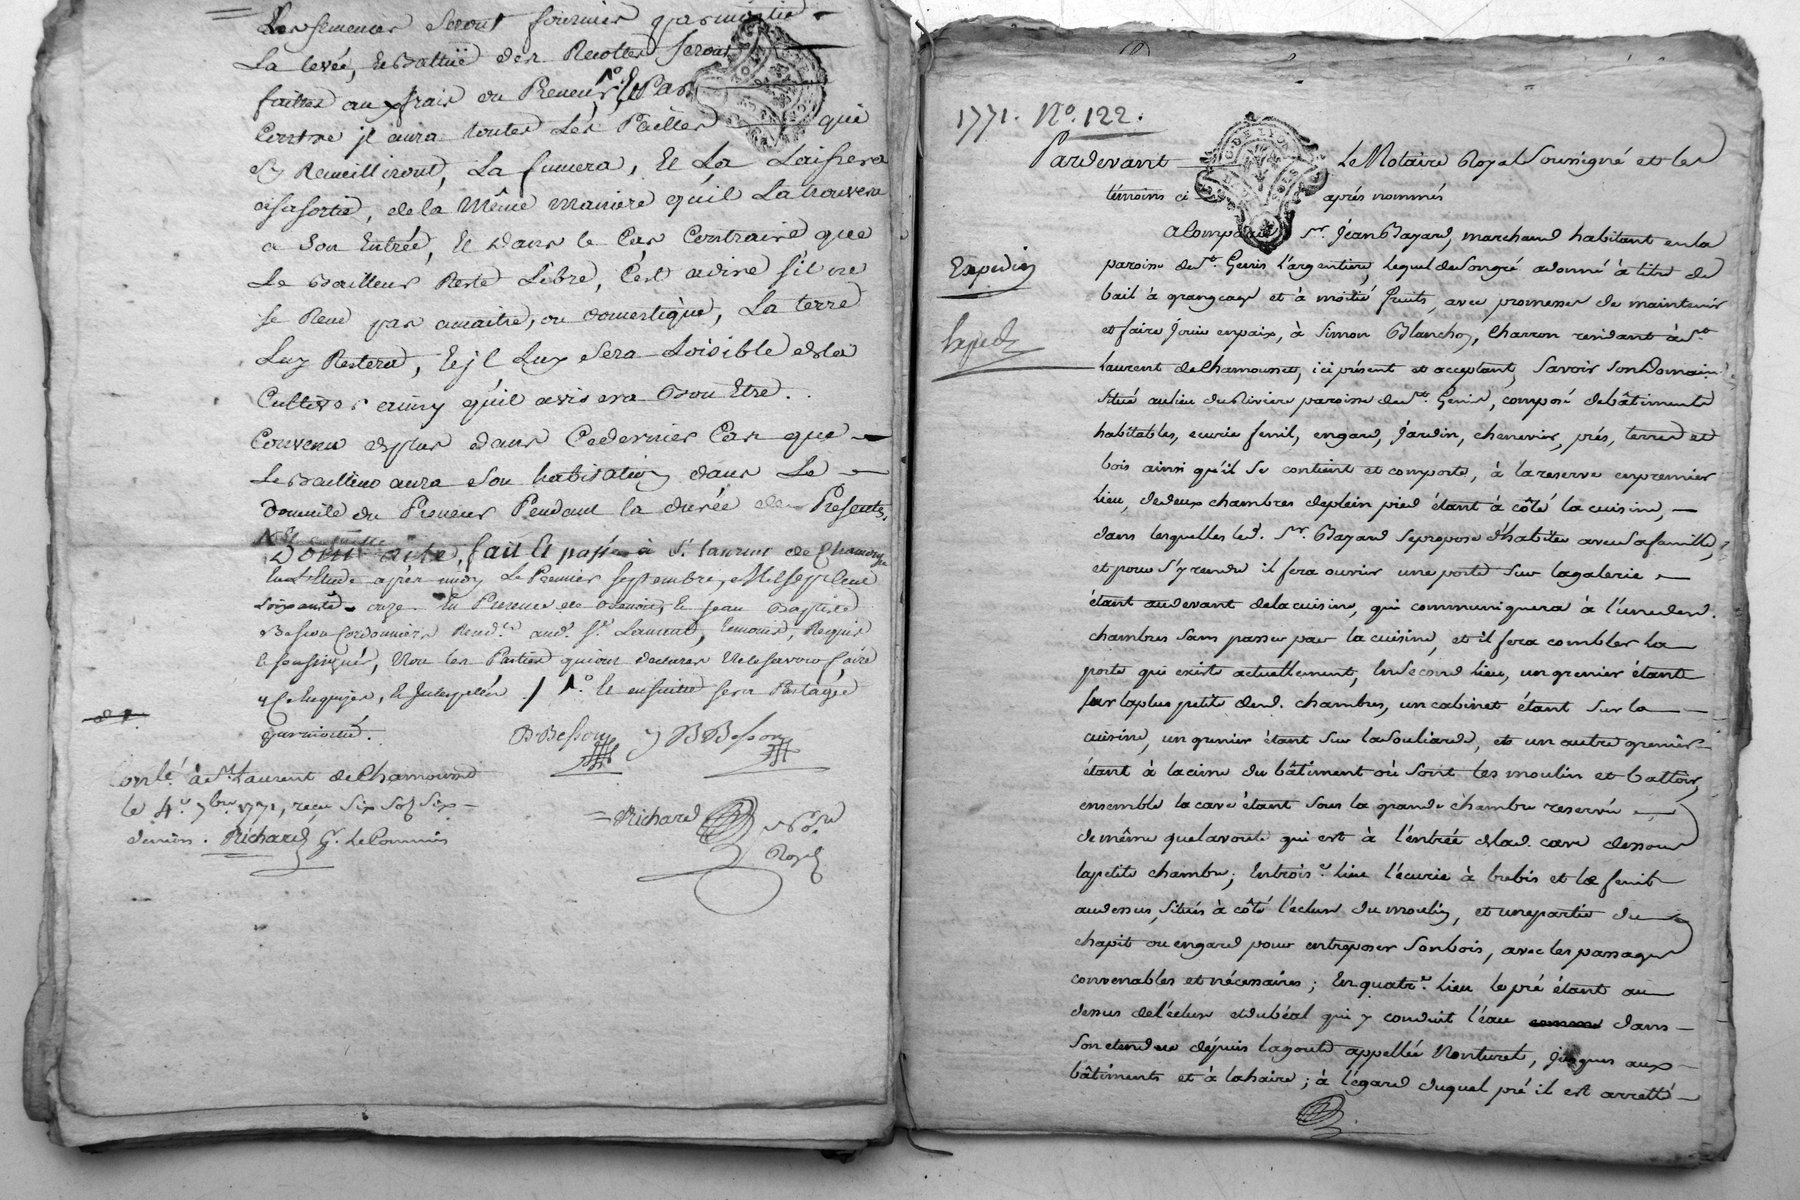 Les semences Seront fournies par moitié
La levée, et Battüe des Recoltes Seront
faittes aux frais du Preneur, Et Par
Contre jl aura toutes Les Pailles qui
S'y Recueilliront, La fumera, Et La Laissera
a Sa Sortie, de la Même maniere qu'il La trouvera
a Son Entrée, Et Dans le Cas Contraire que
Le Bailleur Reste Libre, C'est a dire S'il ne
se Rend pas a maitre, ou domestique, La terre
Luy Restera, Et jl Luy Sera Loisible de la
Cultiver ainsy qu'il avisera Bon Etre.
Convenu de plus dans Ce dernier Cas que
Le Bailleur aura Son habitation dans Le
Domicile du Preneur Pendant la durée des Presentes,
Dont acte, fait Et passé à St. laurent de Chamousset
En L'Etude après midy Le Premier Septembre, Mil Sept Cent
Soixante onze En Presence de Benoit, & Jean Baptiste
Besson Cordonniers Resid.ts aud. St. Laurent, temoins, Requis
& soussignés, Non les Parties qui ont declaré Ne le Savoir faire
de Ce Enquises, & Interpellées ./
par moitié.
BBesson JBBesson
Conlé. à St. Laurent de Chamousset
le 4e. 7bre. 1771, reçu Six Sols Six
deniers. Richard Gr. Le Commis
Richard No.re
Royal
1771. No. 122.
Pardevant Le Notaire Royal Soussigné et les
témoins ci après nommés
A Comparu Sr. Jéan Bayard, marchand habitant en la
Expedié
paroisse de St. Genis l'argentiere, lequel de Son gré a donné à titre de
bail à grangeage et à moitié fruits, avec promesses de maintenir
et faire Jouir en paix, à Simon Blanchon, Charron residant à St.
laurent de Chamousset, ici présent et acceptant, Savoir Son Domaine
Situé au lieu du Riviere paroisse de St. Genis, composé de bâtiments
habitables, ecurie fenil, engard, Jardin, chenevier, prés, terres et
bois ainsi qu'il Se contient et comporte, à la reserve en premier
lieu, de deux chambres de plein pied étant à côté la cuisine,
dans lesquelles led. Sr. Bayard Se propose d'habiter avec Sa famille,
et pour S'y rendre il fera ouvrir une porte Sur la galerie
étant au devant de la cuisine, qui communiquera à l'une desd.
chambres Sans passer par la cuisine, et il fera combler la
porte qui existe actuellement; En Second lieu, un grenier étant
Sur la plus petite desd. chambres, un cabinet étant Sur la
cuisine, un grenier étant Sur la Souliarde, et un autre grenier
étant à la cime du bâtiment où Sont les moulin et battoir,
ensemble la cave étant Sous la grande chambre reservée
de même que la voute qui est à l'entrée de lad. cave dessous
la petite chambre; En trois.e lieu l'écurie à brebis et le fenil
au dessus, Situés à côté l'ecluse du moulin, et une partie du
chapit ou engard pour entreposer Son bois, avec les passages
convenables et nécessaires; En quatr.e lieu le pré étant au
dessus de l'écluse et du béal qui y conduit l'eau dans
Son etendue dépuis la goute appellée Nonturet, jusques aux
bâtiments et à la haire; à l'égard duquel pré il est arretté